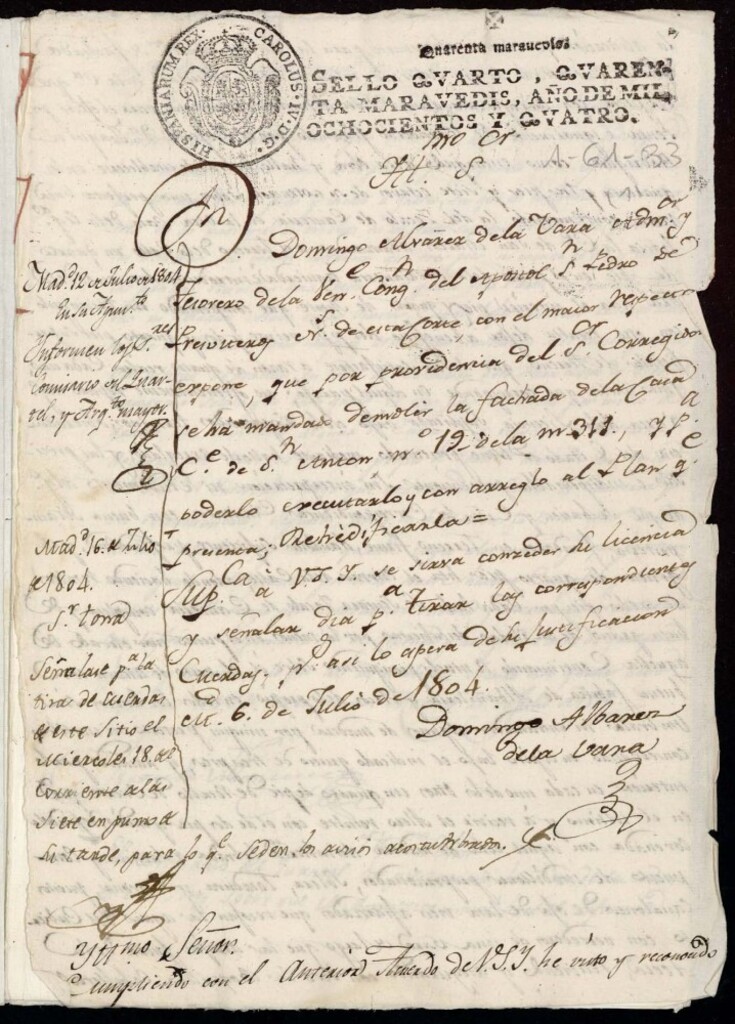 HISPANIARUM REX. CAROLUS · IV · D · G ·
Quarenta marauedis
SELLO QVARTO, QVAREN-
TA MARAVEDIS, AÑO DE MIL
OCHOCIENTOS Y QVATRO.
1-61-33
Yll.mo S.or
Domingo Alvarez de la Vara Adm.or y
Tesorero de la Ven.e Cong.n del Apostol S.n Pedro de
Presviteros de esta Corte, con el maior respecto
expone, que por providencia del S.or Corregidor
se há mandado demoler la fachada de la Casa
C.e de S.n Anton n.o 19 de la m.a 311, y p.a
poderlo executar, y con arreglo al Plan q.e
presenta, Rehedificarla =
Sup.ca á V.S.Y. se sirva conzeder he licencia
y señalar dia p.a tirar las correspondientes
Cuerdas, p.o asi lo apera de he justificacion
M.d 6. de Julio de 1804.
Domingo Albarez
de la Vara
Mad.d 12 de Julio de 1804
En su Ayun.to
Informen los S.res
Comisario del Quar-
tel, y Arq.to mayor.
Mad.d 16. de Julio
de 1804.
S.r torra
Señalase p.a la
tira de cuerdas
de este Sitio el
Miercoles 18. del
Corriente a las
Siete en punto de
su tarde, para lo q.e se den los avisos acostumbrados.
Yltmo Señor.
Cumpliendo con el Anterior Acuerdo de V.S.Y. he visto y reconocido